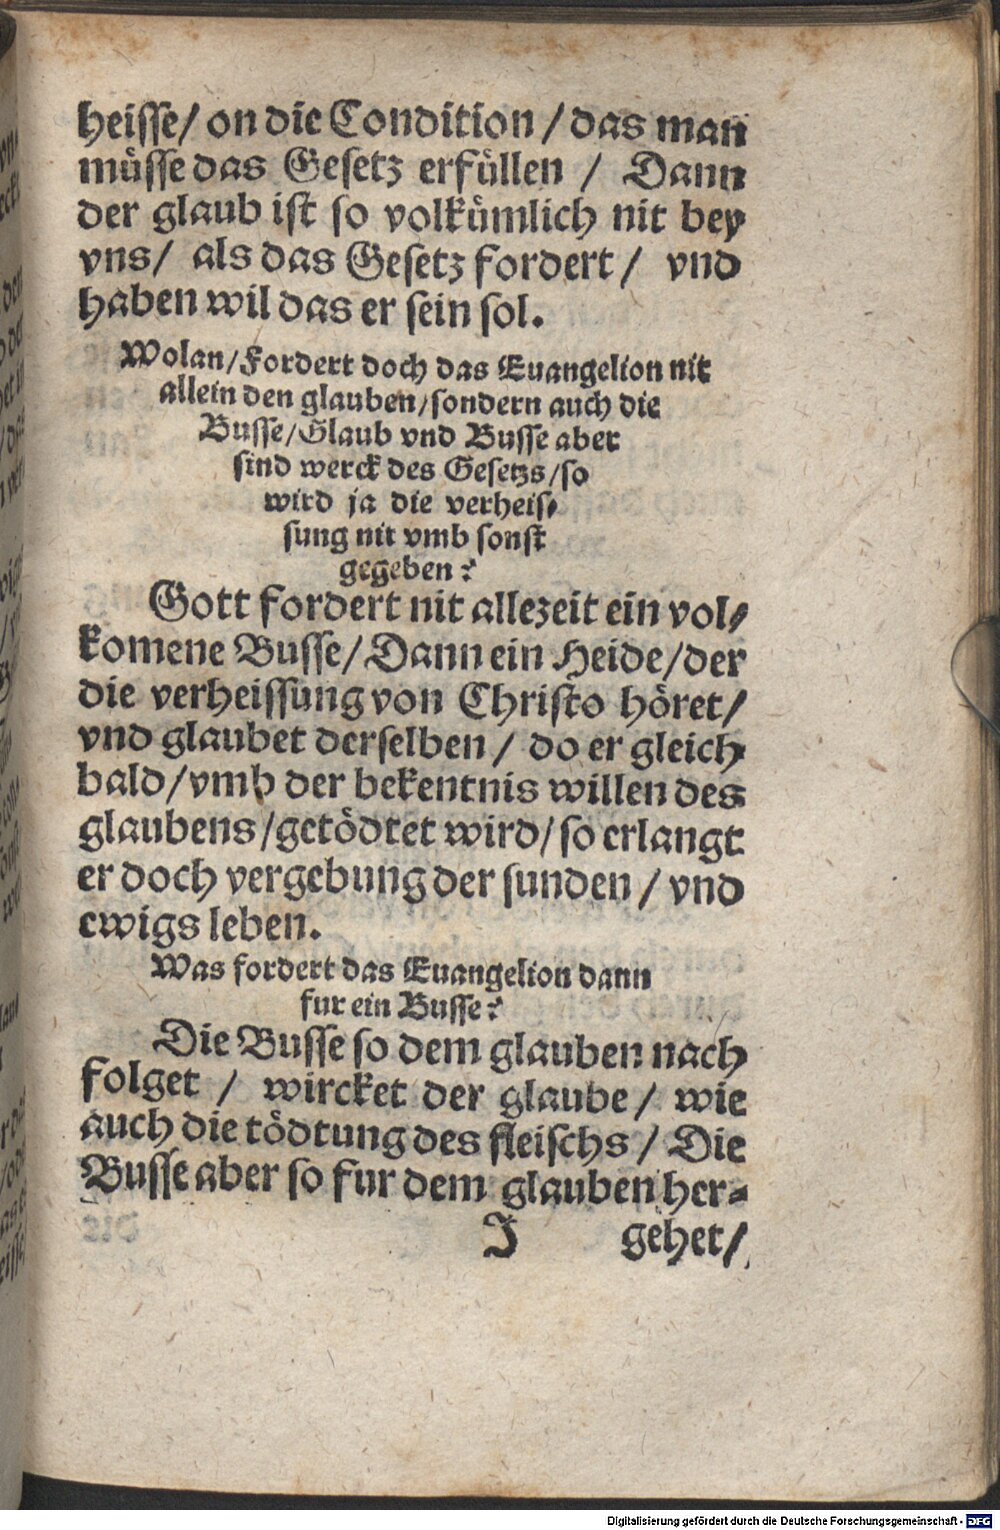 heisse/ on die Condition / das man
müsse das Gesetz erfüllen / Dann
der glaub ist so volkümlich nit bey
vns/ als das Gesetz fordert / vnd
haben wil das er sein sol.
Wolan/Fordert doch das Euangelion nit
allein den glauben/sondern auch die
Busse/Glaub vnd Busse aber
sind werck des Gesetzs/so
wird ja die verheis-
sung nit vmb sonst
gegeben?
Gott fordert nit allezeit ein vol-
komene Busse/Dann ein Heide/der
die verheissung von Christo höret/
vnd glaubet derselben / do er gleich
bald/vmb der bekentnis willen des
glaubens/getödtet wird/so erlangt
er doch vergebung der sunden / vnd
ewigs leben.
Was fordert das Euangelion dann
fur ein Busse?
Die Busse so dem glauben nach
folget / wircket der glaube / wie
auch die tödtung des fleischs / Die
Busse aber so fur dem glauben her-
J gehet/
Digitalisierung gefördert durch die Deutsche Forschungsgemeinschaft - DFG